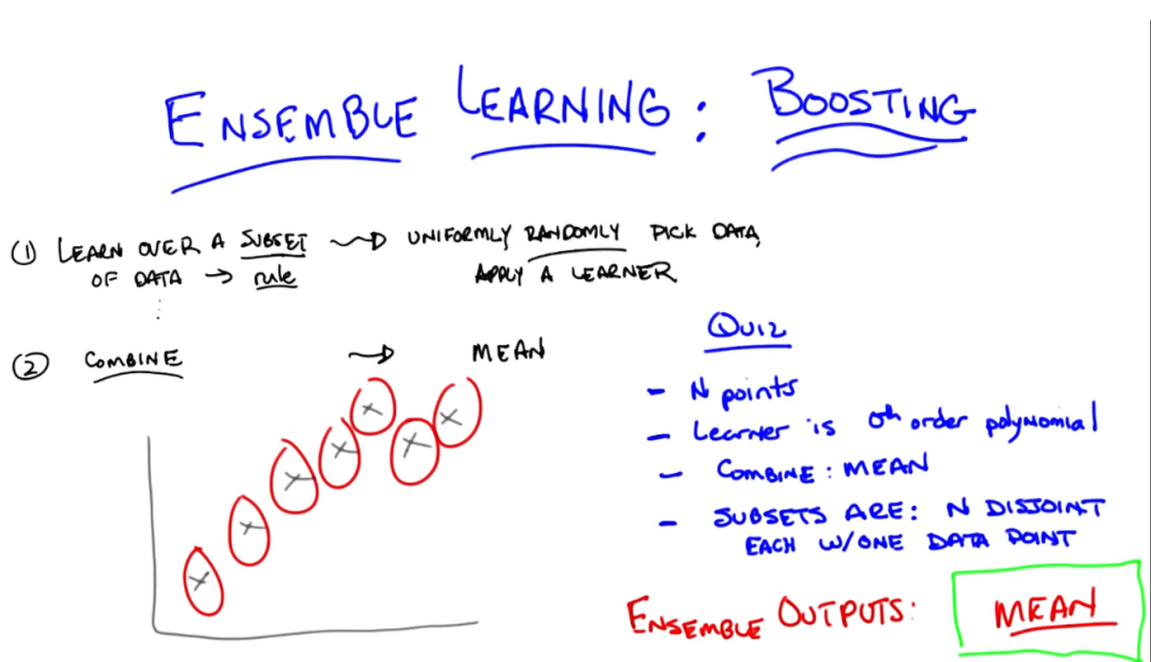 ENSEMBLE LEARNING: BOOSTING
① LEARN OVER A SUBSET → UNIFORMLY RANDOMLY PICK DATA,
OF DATA → rule APPLY A LEARNER
② COMBINE → MEAN
QUIZ
- N points
- Learner is 0th order polynomial
- COMBINE: MEAN
- SUBSETS ARE: N DISJOINT
EACH W/ONE DATA POINT
ENSEMBLE OUTPUTS: MEAN